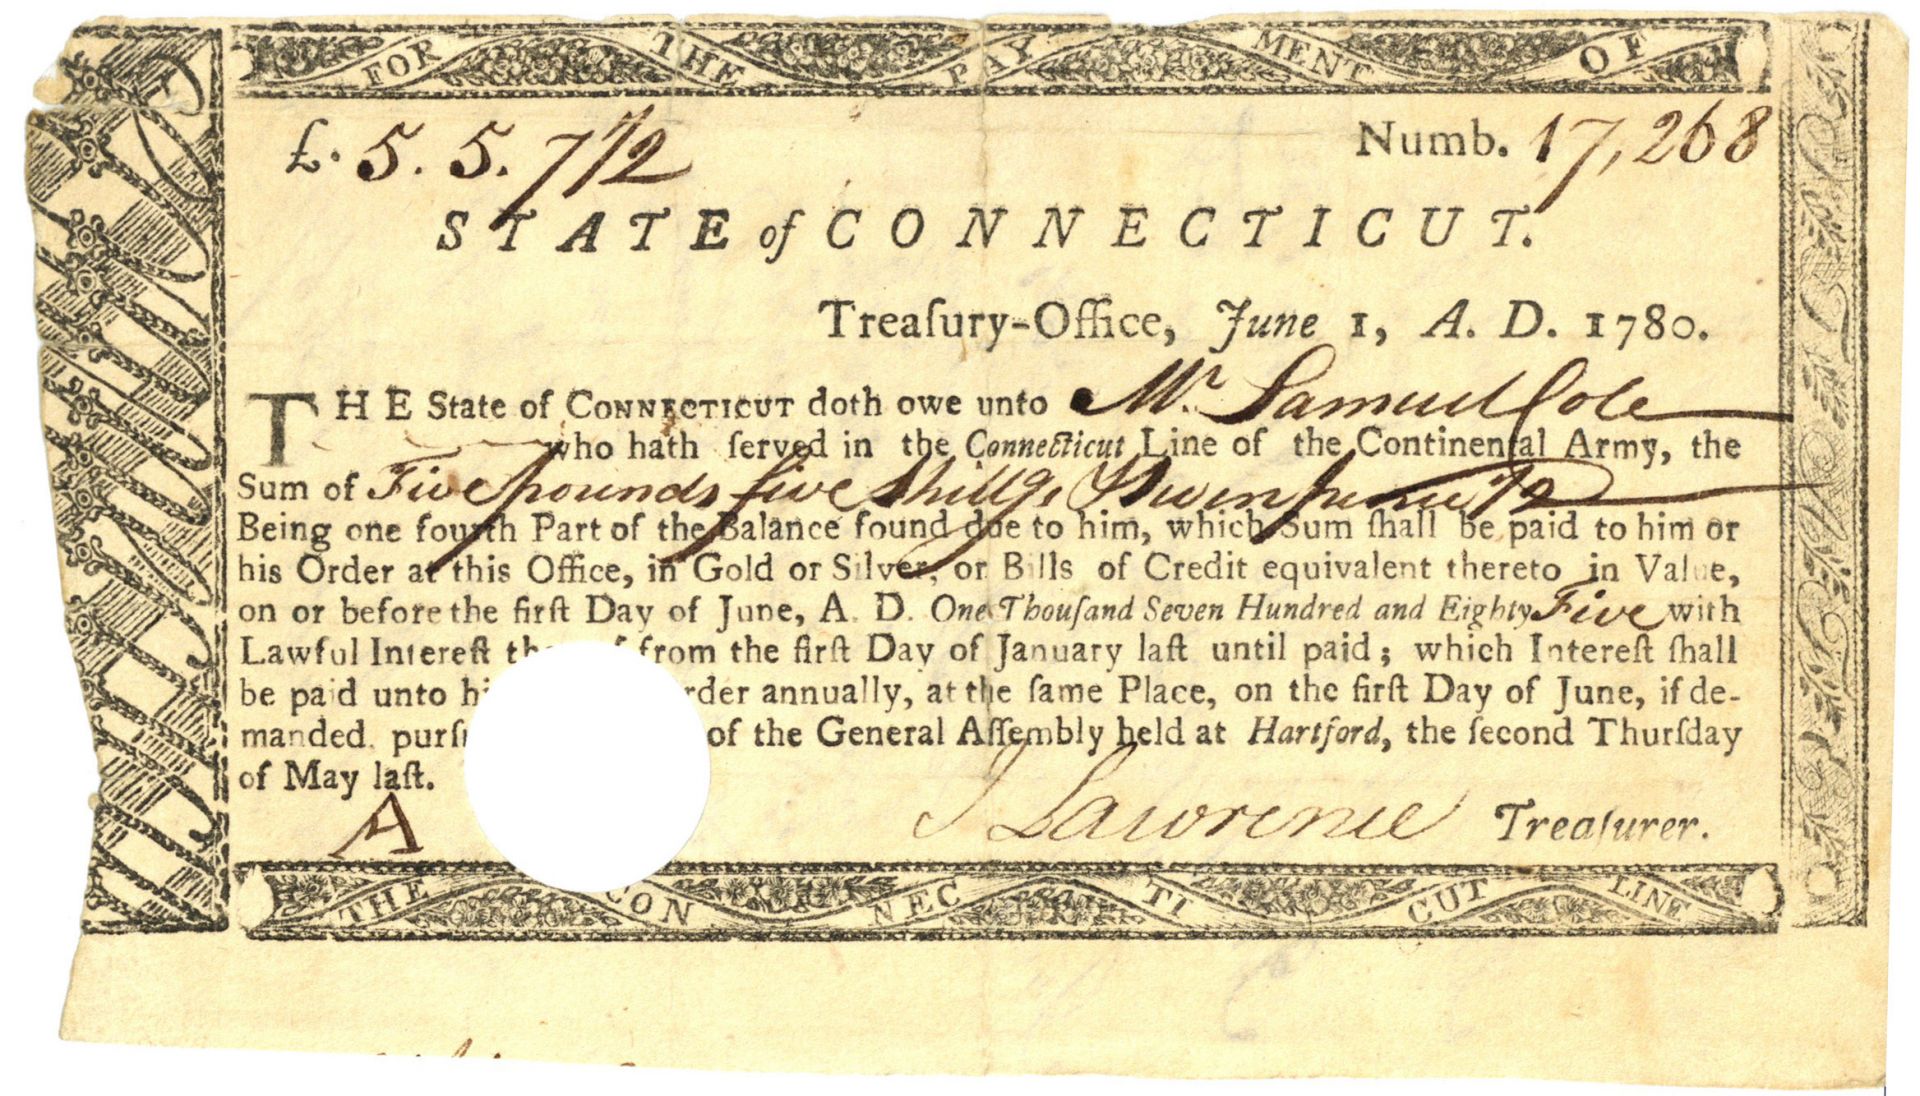 FOR THE PAYMENT OF
£. 5. 5. 7 1/2 Numb. 17,268
STATE of CONNECTICUT.
Treaſury-Office, June 1, A. D. 1780.
THE State of CONNECTICUT doth owe unto Mr. Samuel Cole
who hath ſerved in the Connecticut Line of the Continental Army, the
Sum of Five pounds five Shillgs & Seven pence 1/2
Being one fourth Part of the Balance found due to him, which Sum ſhall be paid to him or
his Order at this Office, in Gold or Silver, or Bills of Credit equivalent thereto in Value,
on or before the firſt Day of June, A. D. One Thouſand Seven Hundred and Eighty Five with
Lawful Intereſt from the firſt Day of January laſt until paid; which Intereſt ſhall
be paid unto annually, at the ſame Place, on the firſt Day of June, if de-
manded, of the General Aſſembly held at Hartford, the ſecond Thurſday
of May laſt.
A J Lawrence Treaſurer.
THE CONNECTICUT LINE